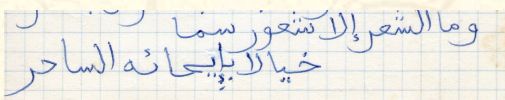 وما الشعر إلا شعور سما
خيالا بإيحائه الساحر